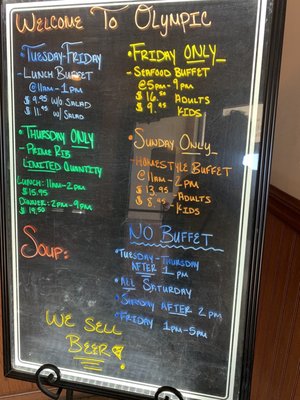 Welcome To Olympic
• Tuesday-Friday
- Lunch Buffet
@ 11am-1pm
$9.95 w/o Salad
$11.45 w/ Salad
• Thursday ONLY
- Prime Rib
Limited Quantity
Lunch: 11am-2pm
$15.95
Dinner: 2pm-9pm
$19.50
Soup:
We Sell
Beer
• Friday ONLY
- Seafood Buffet
@ 5pm-9pm
$16.50 Adults
$9.45 Kids
• Sunday Only
- Homestyle Buffet
@ 11am-2pm
$13.95 - Adults
$8.95 - Kids
NO Buffet
• Tuesday-Thursday
AFTER 1pm
• ALL Saturday
• Sunday AFTER 2pm
• Friday 1pm-5pm